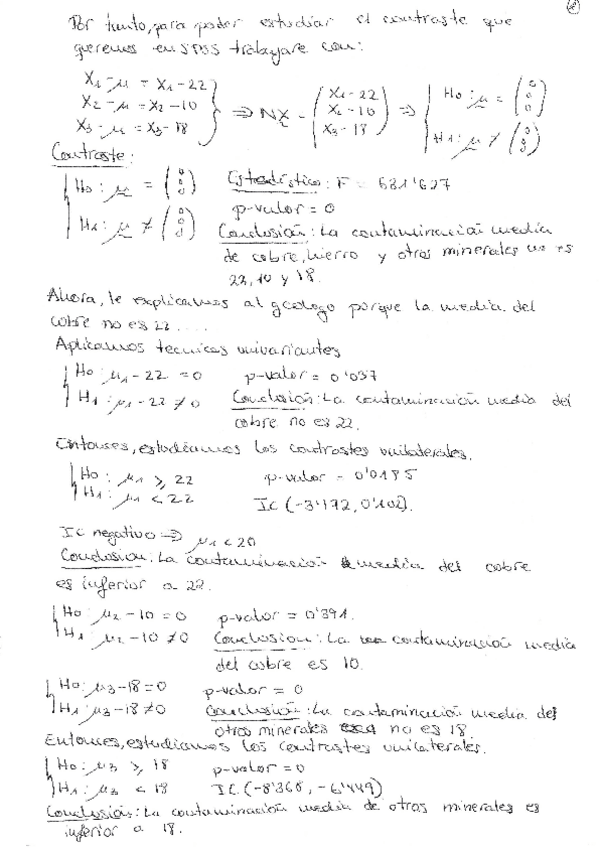 Por tanto, para poder estudiar el contraste que
queremos en SPSS trabajare con:
X1 - μ = X1 - 22
X2 - μ = X2 - 10
X3 - μ = X3 - 18
⇒ NX - (X1 - 22 X2 - 10 X3 - 18) ⇒ H0: μ = (0 0 0)
H1: μ ≠ (0 0 0)
Contraste:
H0: μ = (0 0 0) Estadístico: F = 681'627
H1: μ ≠ (0 0 0) p-valor = 0
Conclusión: La contaminación media
de cobre, hierro y otros minerales no es
22, 10 y 18.
Ahora, le explicamos al geologo porque la media del
cobre no es 22 ....
Aplicamos tecnicas univariantes
H0: μ1 - 22 = 0 p-valor = 0'037
H1: μ1 - 22 ≠ 0 Conclusión: La contaminación media del
cobre no es 22.
Entonces, estudiamos los contrastes unilaterales.
H0: μ1 ≥ 22 p-valor = 0'0185
H1: μ1 < 22 IC (-3'172, 0'102).
IC negativo ⇒ μ1 < 20
Conclusion: La contaminación media del cobre
es inferior a 22.
H0: μ2 - 10 = 0 p-valor = 0'391.
H1: μ2 - 10 ≠ 0 Conclusion: La contaminación media
del cobre es 10.
H0: μ3 - 18 = 0 p-valor = 0
H1: μ3 - 18 ≠ 0 Conclusión: La contaminación media de
otros minerales no es 18.
Entonces, estudiamos los contrastes unilaterales.
H0: μ3 ≥ 18 p-valor = 0
H1: μ3 < 18 IC (-8'368, -6'449)
Conclusión: La contaminación media de otros minerales es
inferior a 18.